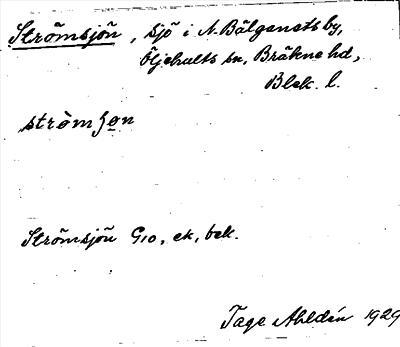 Strömsjön, sjö i N. Bälganets by,
Öljehults sn, Bräkne hd,
Blek. l.
Strömsjön G10, ek, bek.
Tage Ahldén 1929